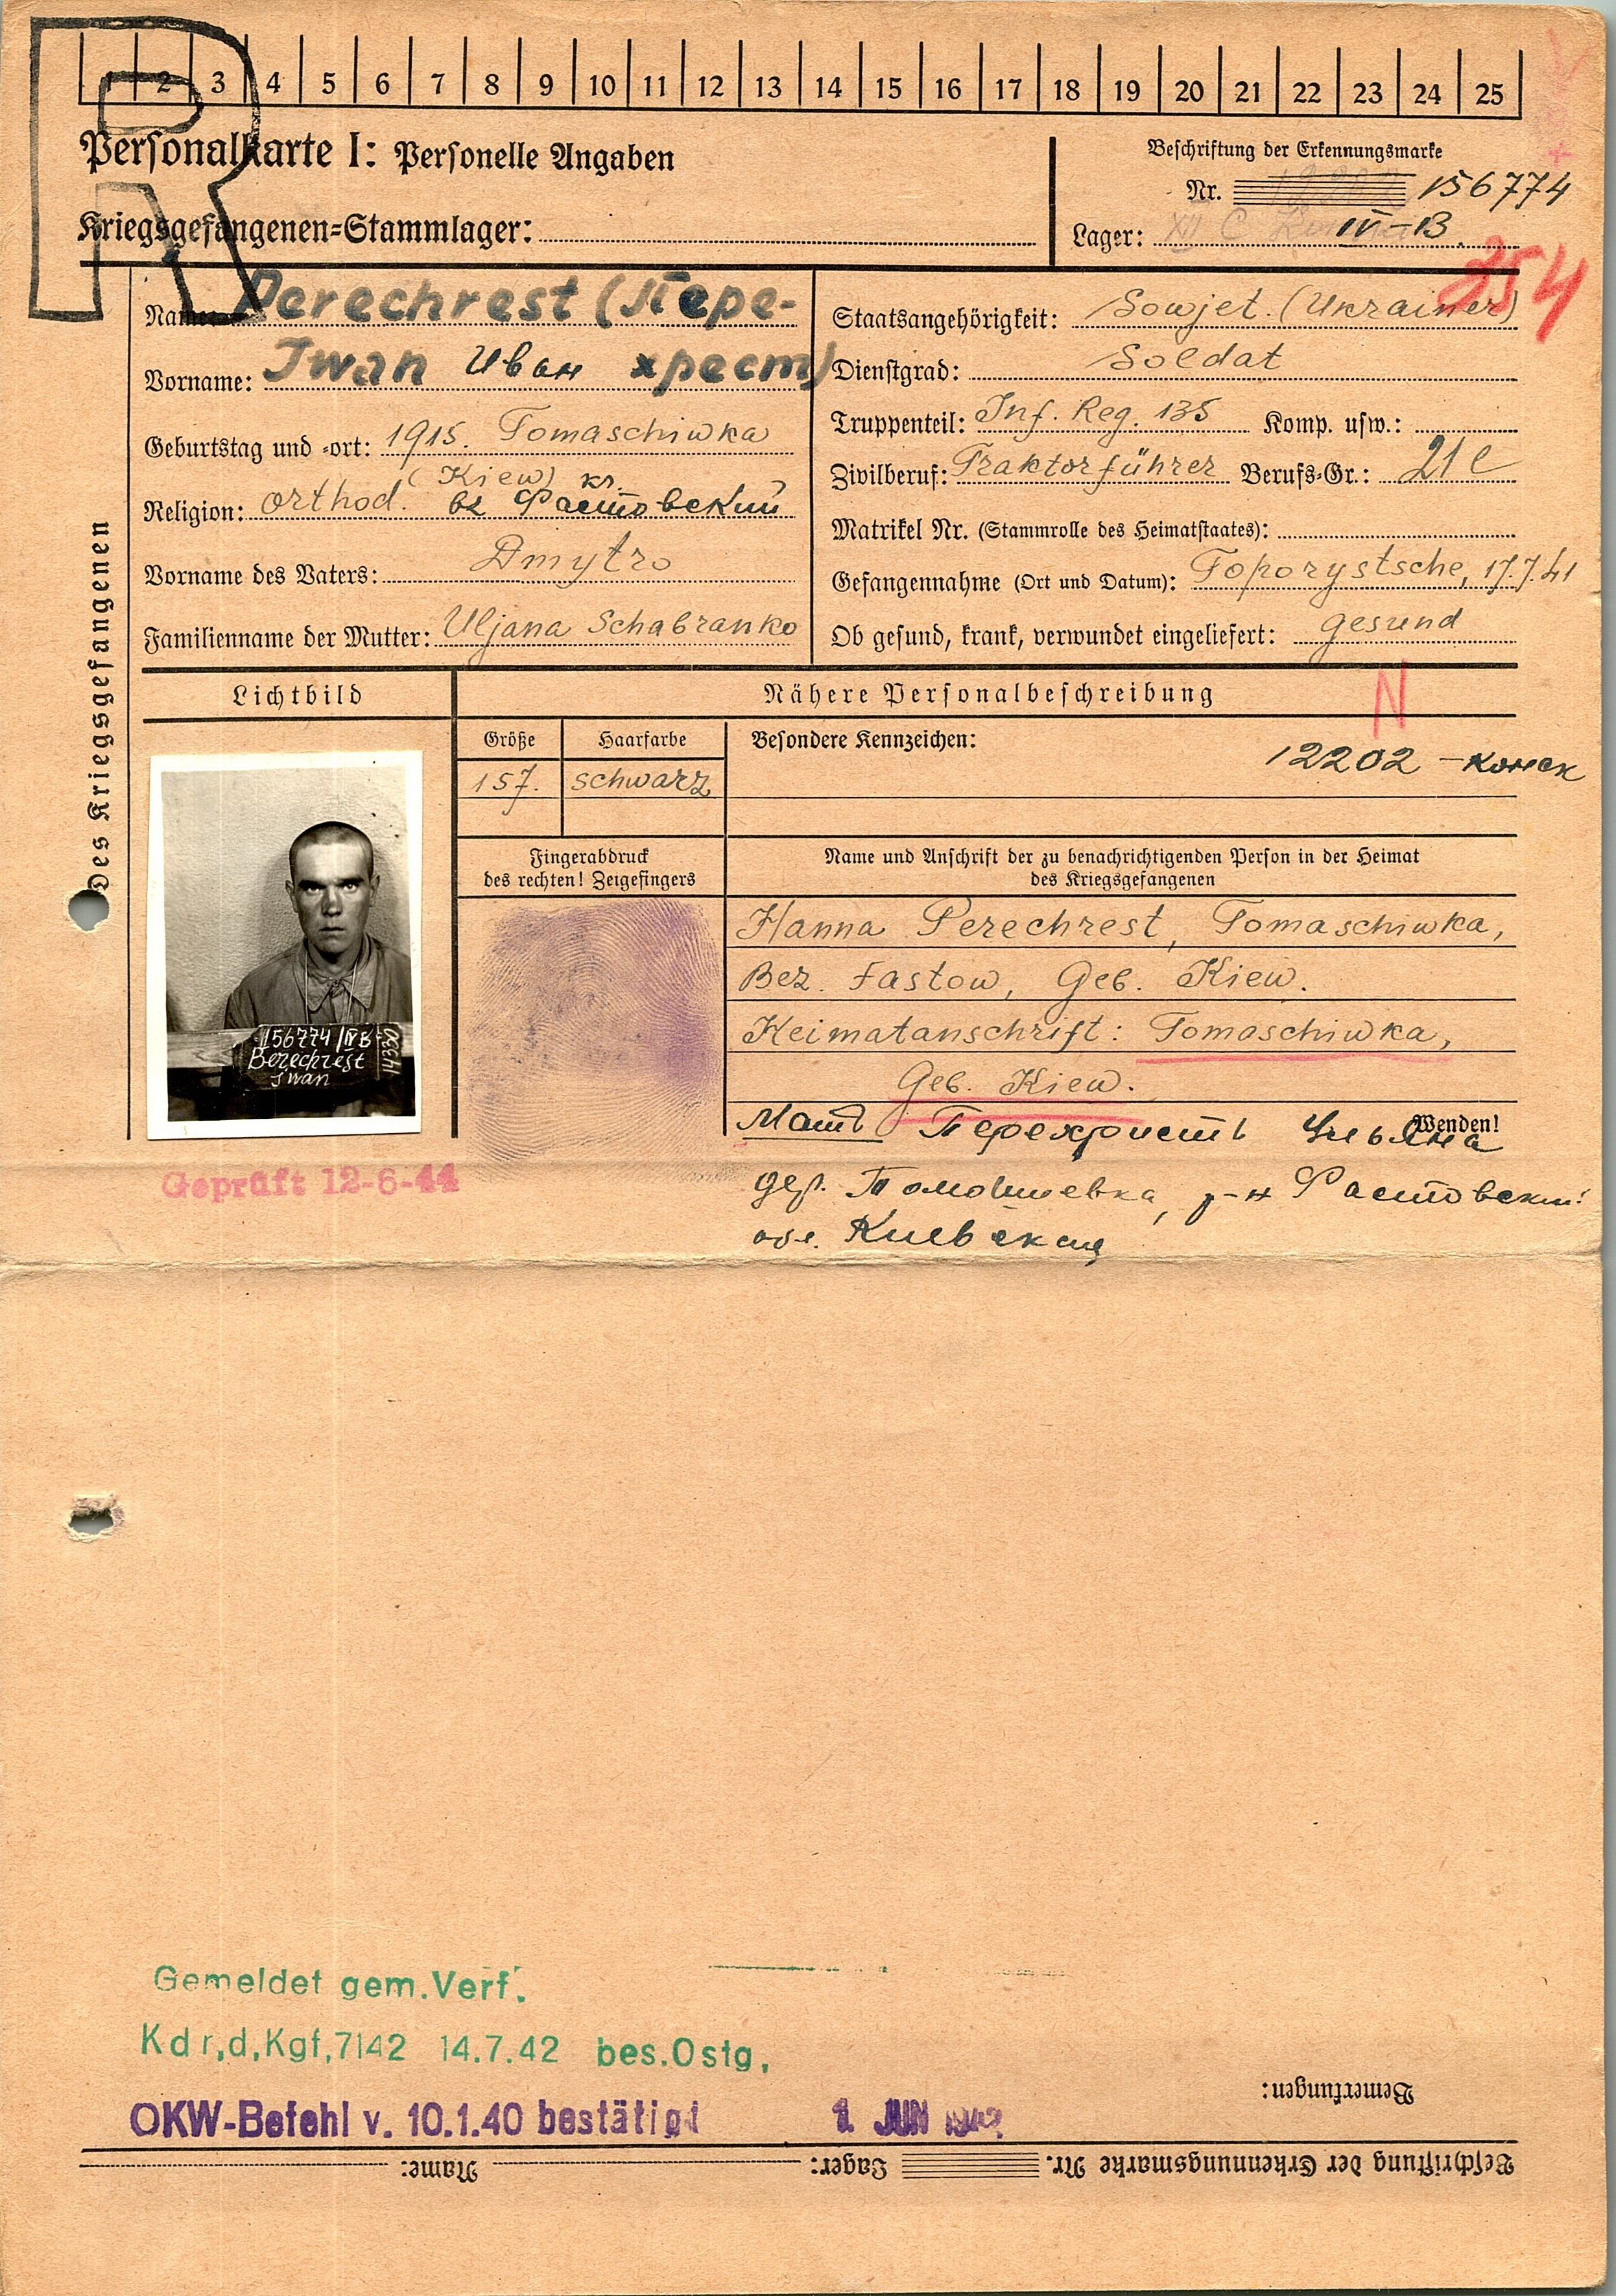 R
1 2 3 4 5 6 7 8 9 10 11 12 13 14 15 16 17 18 19 20 21 22 23 24 25
Personalkarte I: Personelle Angaben
Kriegsgefangenen-Stammlager:
Beschriftung der Erkennungsmarke
Nr. 156774
Lager: IV-B
XII C
254
Des Kriegsgefangenen
Name: Perechrest (Пере-
Vorname: Iwan Иван хрест)
Geburtstag und -ort: 1915. Tomaschiwka
(Kiew) кr.
Religion: orthod. Фастовский
Vorname des Vaters: Dmytro
Familienname der Mutter: Uljana Schabranko
Staatsangehörigkeit: Sowjet. (Ukrainer)
Dienstgrad: Soldat
Truppenteil: Inf. Reg. 135 Komp. usw.:
Zivilberuf: Traktorführer Berufs-Gr.: 21e
Matrikel Nr. (Stammrolle des Heimatstaates):
Gefangennahme (Ort und Datum): Toporystsche, 17.7.41
Ob gesund, krank, verwundet eingeliefert: gesund
Lichtbild
Nähere Personalbeschreibung
N
Größe Haarfarbe
157. schwarz
Besondere Kennzeichen:
12202 -
Fingerabdruck
des rechten! Zeigefingers
Name und Anschrift der zu benachrichtigenden Person in der Heimat
des Kriegsgefangenen
Hanna Perechrest, Tomaschiwka,
Bez. Fastow, Geb. Kiew.
Heimatanschrift: Tomaschiwka,
Geb. Kiew.
Wenden!
Мать Перехристь Ульяна
дер. Томошиевка, р-н Фастовский
обл. Киевская
156774/IV B
Berechrest
Iwan
Geprüft 12-6-44
Gemeldet gem.Verf.
Kdr,d,Kgf,7142 14.7.42 bes.Ostg,
OKW-Befehl v. 10.1.40 bestätigt 1. JUN 1942
Bemerkungen:
Beschriftung der Erkennungsmarke Nr. Lager: Name: